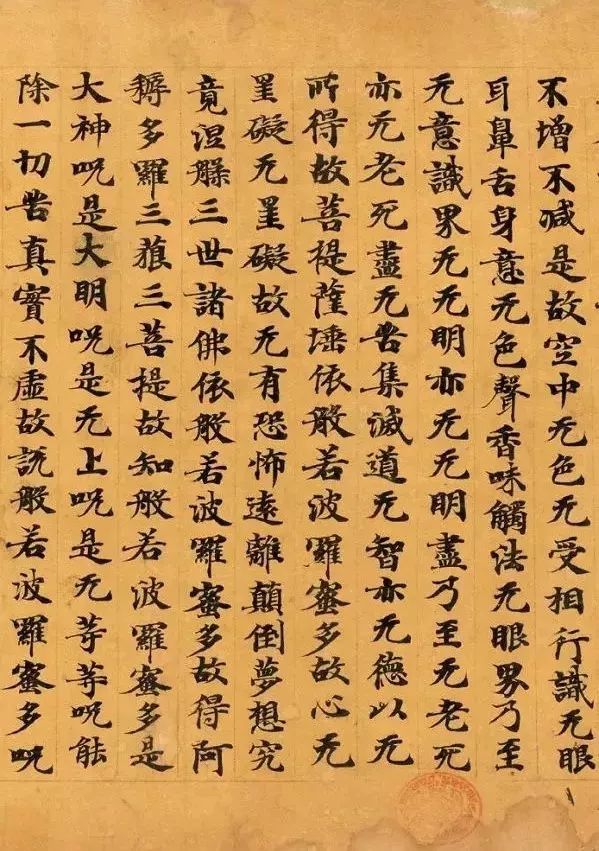 不增不減是故空中无色无受相行識无眼
耳鼻舌身意无色聲香味觸法无眼界乃至
无意識界无无明亦无无明盡乃至无老死
亦无老死盡无苦集滅道无智亦无德以无
所得故菩褆薩埵依般若波羅蜜多故心无
罣礙无罣礙故无有恐怖遠離顛倒夢想究
竟涅槃三世諸佛依般若波羅蜜多故得阿
耨多羅三藐三菩提故知般若波羅蜜多是
大神呪是大明呪是无上呪是无等等呪能
除一切苦真實不虛故說般若波羅蜜多呪